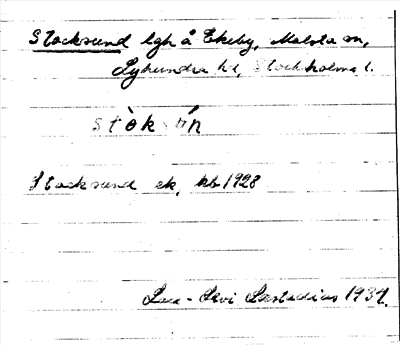 Stocksund lgh å Ekeby, Malsta sn,
Lyhundra hd, Stockholms l.
stòk
Stocksund ek, kb 1928
Lars-Levi Læstadius 1934.